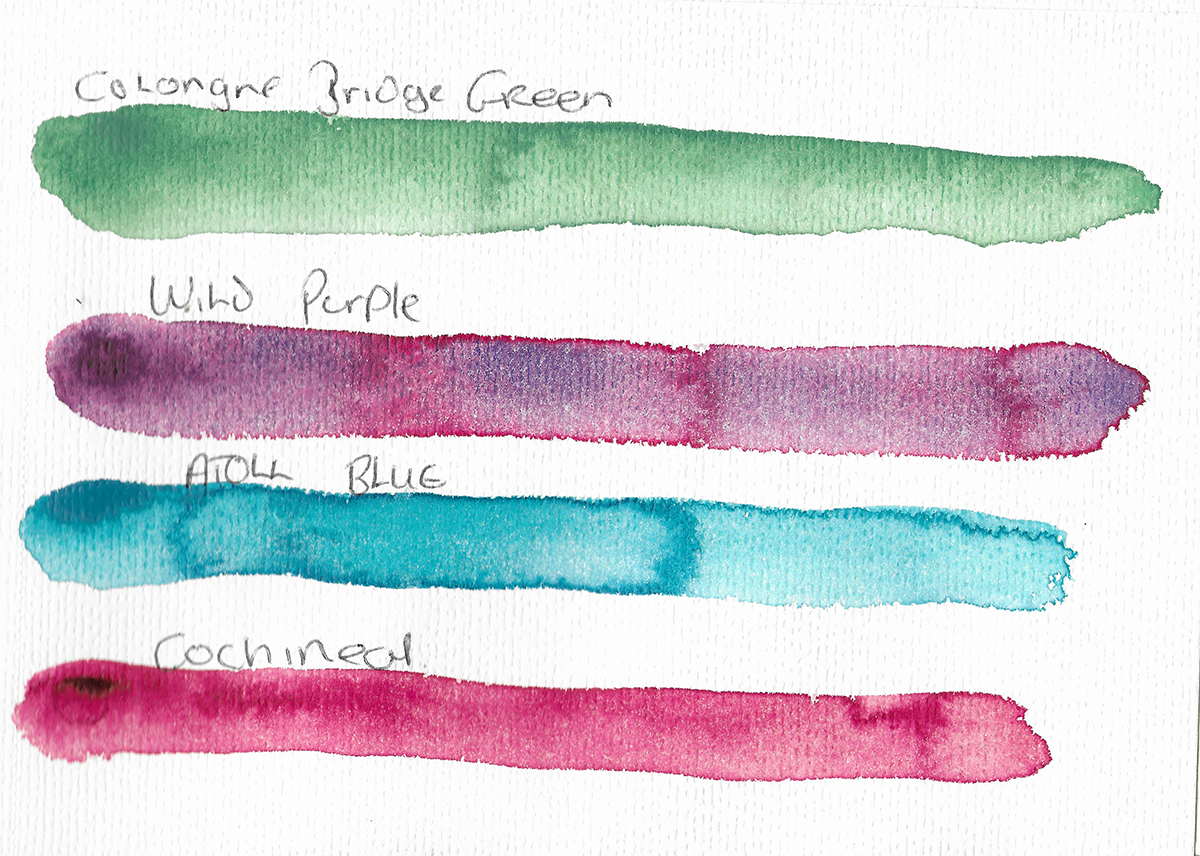 Colongne Bridge Green
Wild Purple
ATOLL BLUE
Cochineal.